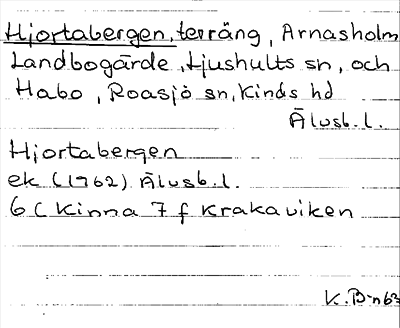 Hjortabergen, terräng, Arnasholm
Landbogärde, Ljushults sn, och
Habo, Roasjö sn, Kinds hd
Älvsb. l.
Hjortabergen
ek (1962) Älvsb. l.
6 C Kinna 7 f Krakaviken
K. B-n 63